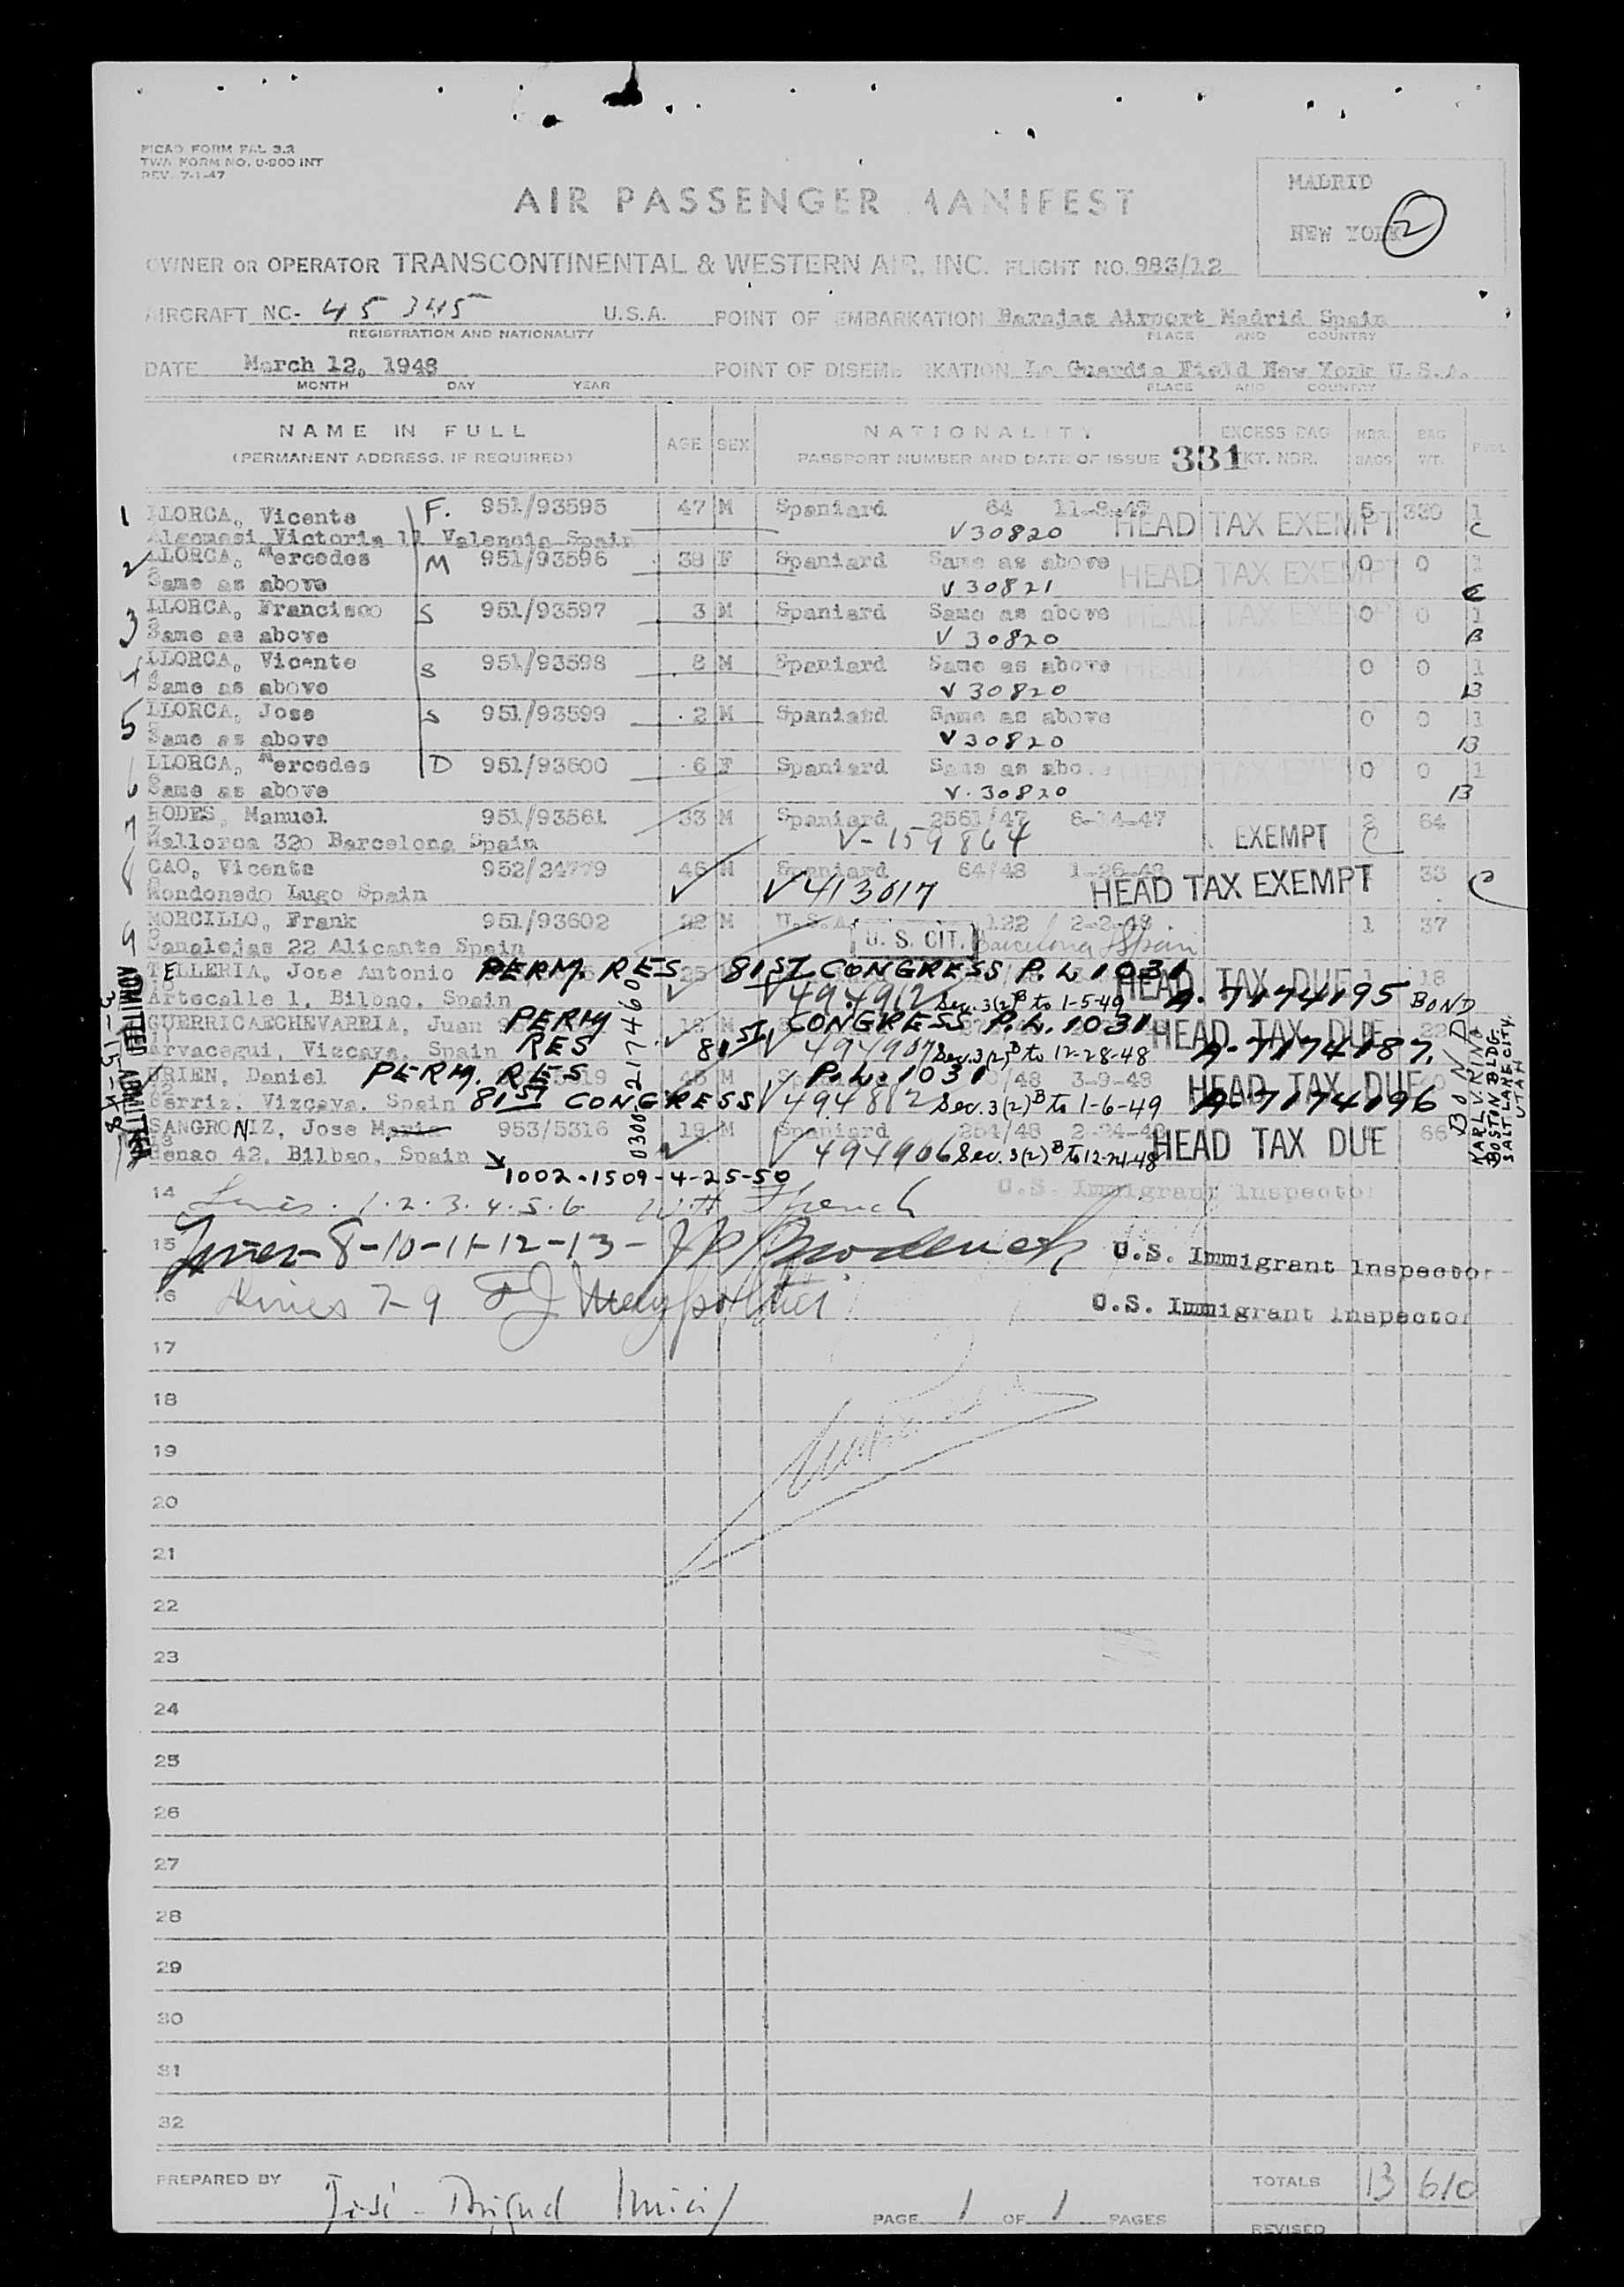 PICAO FORM FAL 3.2
TWA FORM NO. 0-900 INT
REV. 7-1-47
MADRID
NEW YORK
2
AIR PASSENGER MANIFEST
OWNER OR OPERATOR TRANSCONTINENTAL & WESTERN AIR, INC. FLIGHT NO. 983/12
AIRCRAFT NC- 45345 U.S.A. POINT OF EMBARKATION Barajas Airport Madrid Spain
REGISTRATION AND NATIONALITY PLACE AND COUNTRY
DATE March 12, 1948 POINT OF DISEMBARKATION La Guardia Field New York U.S.A.
MONTH DAY YEAR PLACE AND COUNTRY
NAME IN FULL AGE SEX NATIONALITY EXCESS BAG NBR. BAG
(PERMANENT ADDRESS, IF REQUIRED) PASSPORT NUMBER AND DATE OF ISSUE 331 KT. NBR. BAGS WT.
1 LLORCA, Vicente F. 951/93595 47 M Spaniard 64 11-8-47 5 320 1
Algemesi Victoria 11 Valencia Spain V30820 HEAD TAX EXEMPT C
2 LLORCA, Mercedes M 951/93596 38 F Spaniard Same as above 0 0 1
Same as above V30821 HEAD TAX EXEMPT C
3 LLORCA, Francisco S 951/93597 3 M Spaniard Same as above HEAD TAX EXEMPT 0 0 1
Same as above V 30820 B
4 LLORCA, Vicente S 951/93598 8 M Spaniard Same as above HEAD TAX EXEMPT 0 0 1
Same as above V 30820 B
5 LLORCA, Jose S 951/93599 2 M Spaniard Same as above 0 0 1
Same as above V30820 B
6 LLORCA, Mercedes D 951/93600 6 F Spaniard Same as above HEAD TAX EXEMPT 0 0 1
Same as above V. 30820 B
7 RODES, Manuel 951/93561 33 M Spaniard 2561/47 6-14-47 2 64
Mallorca 320 Barcelona Spain V-159864 EXEMPT C
8 CAO, Vicente 952/24779 46 M Spaniard 64/48 1-26-48 33
Mondonedo Lugo Spain V413017 HEAD TAX EXEMPT C
9 MORCILLO, Frank 951/93602 22 M U.S.A. 122 2-2-48 1 37
Canalejas 22 Alicante Spain U. S. CIT. Barcelona Spain
TELLERIA, Jose Antonio PERM. RES 25 81ST CONGRESS P.L. 1031 HEAD TAX DUE 1 18
Artecalle 1, Bilbao, Spain V494912 Sec. 3(2)B to 1-5-49 A-7174195 BOND
GUERRICAECHEVARRIA, Juan PERM RES M 81ST CONGRESS P.L. 1031 HEAD TAX DUE 22
Arvacegui, Vizcaya, Spain V 494907 Sec. 3(2)B to 12-28-48 A-7174187
URIEN, Daniel PERM. RES 45 M P.L. 1031 /48 3-9-48 HEAD TAX DUE
Berriz, Vizcaya, Spain 81ST CONGRESS V494882 Sec. 3(2)B to 1-6-49 A-7174196
SANGRONIZ, Jose Maria 953/5316 19 M Spaniard 254/48 2-24-48 66
Henao 42, Bilbao, Spain V 494906 Sec. 3(2)B to 12-21-48 HEAD TAX DUE
1002-1509-4-25-50
0300 217460
ADMITTED ADMITTED
3-15-48
BOND
KARL V. KING
BOSTON BLDG.
SALT LAKE CITY.
UTAH
14 Lines. 1.2.3.4.5.6. French U.S. Immigrant Inspector
15 Lines-8-10-11-12-13- U.S. Immigrant Inspector
16 Lines 7-9 U.S. Immigrant Inspector
17
18
19
20
21
22
23
24
25
26
27
28
29
30
31
32
PREPARED BY José Miguel TOTALS 13 610
PAGE 1 OF 1 PAGES
REVISED